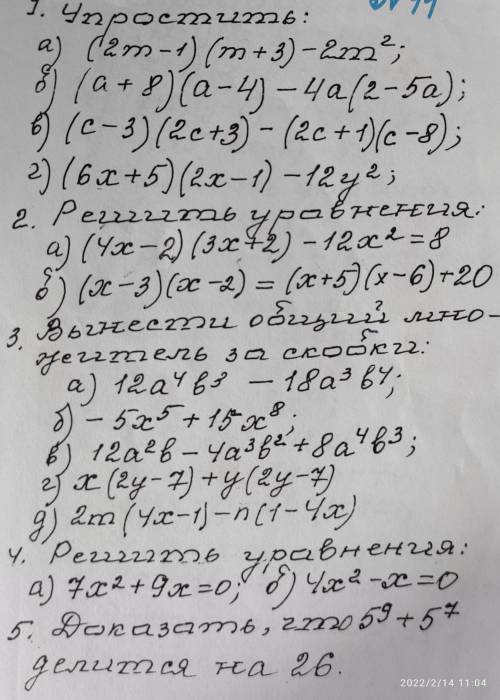 1. Упростить: №11
а) (2m-1)(m+3)-2m²;
б) (a+8)(a-4)-4a(2-5a);
в) (c-3)(2c+3)-(2c+1)(c-8);
г) (6x+5)(2x-1)-12y²;
2. Решить уравнения:
а) (4x-2)(3x+2)-12x²=8
б) (x-3)(x-2)=(x+5)(x-6)+20
3. Вынести общий мно-
житель за скобки:
а) 12a⁴b³-18a³b⁴;
б) -5x⁵+15x⁸;
в) 12a²b-4a³b²+8a⁴b³;
г) x(2y-7)+y(2y-7)
д) 2m(4x-1)-n(1-4x)
4. Решить уравнения:
а) 7x²+9x=0; б) 4x²-x=0
5. Доказать, что 5⁹+5⁷
делится на 26.
2022/2/14 11:04